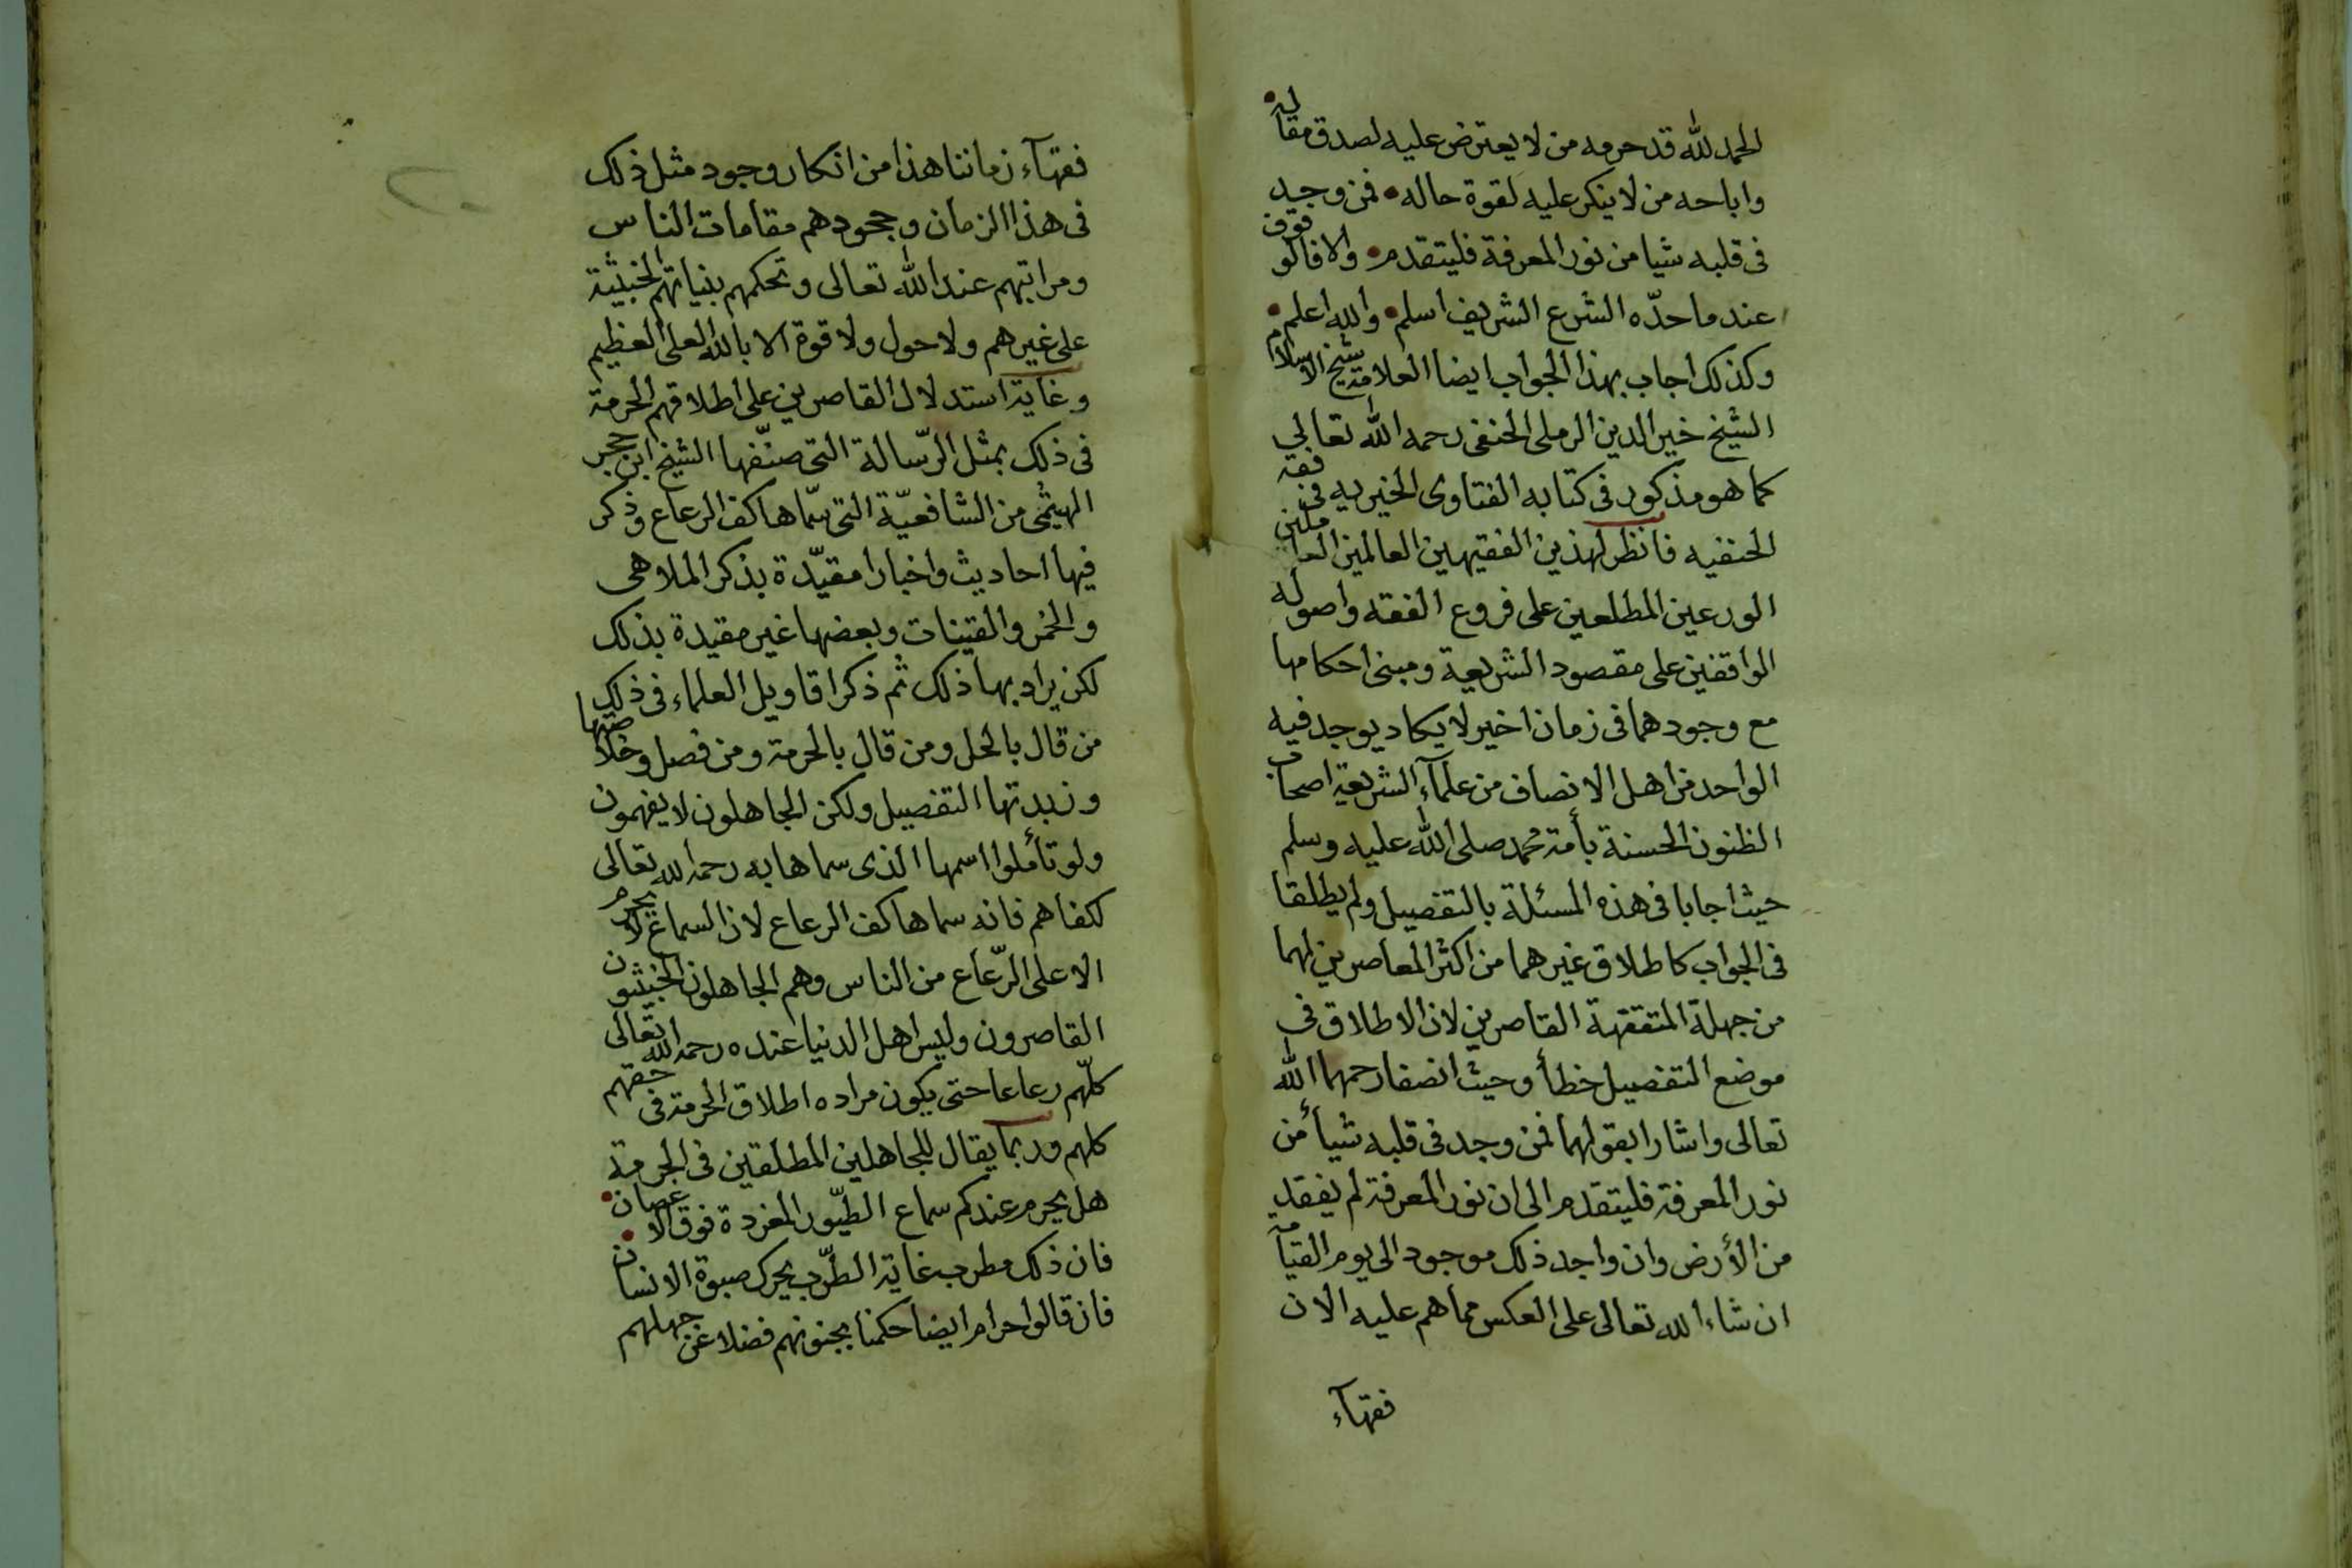 الحمد لله قد حرمه من لا يعترض عليه لصدق مقاله
واباحه من لا ينكر عليه لقوة حاله • فمن وجد
فى قلبه شيا من نور المعرفة فليتقدم • والا فالوقوف
عند ما حدّه الشرع الشريف اسلم • والله اعلم •
وكذلك اجاب بهذا الجواب ايضا العلامة شيخ الاسلام
الشيخ خير الدين الرملى الحنفى رحمه الله تعالى
كما هو مذكور فى كتابه الفتاوى الخيريه فى فقه
الحنفيه فانظر لهذين الفقيهين العالمين العاملين
الورعين المطلعين على فروع الفقه واصوله
الواقفين على مقصود الشريعة ومبنى احكامها
مع وجودهما فى زمان اخير لا يكاد يوجد فيه
الواحد من اهل الانصاف من علمآء الشريعة اصحاب
الظنون الحسنة بأمة محمد صلى الله عليه وسلم
حيث اجابا فى هذه المسئلة بالتفصيل ولم يطلقا
فى الجواب كاطلاق غيرهما من اكثر المعاصرين لهما
من جهلة المتفقهة القاصرين لان الاطلاق فى
موضع التفصيل خطأ وحيث انصفا رحمهما الله
تعالى واشارا بقولهما فمن وجد فى قلبه شيأ من
نور المعرفة فليتقدم الى ان نور المعرفة لم يفقد
من الأرض وان واجد ذلك موجود الى يوم القيآمة
ان شاء الله تعالى على العكس مما هم عليه الان
فقهآء
فقهآء زماننا هذا من انكار وجود مثل ذلك
فى هذا الزمان وجحودهم مقامات الناس
ومراتبهم عند الله تعالى وتحكمهم بنياتهم الخبيثة
على غيرهم ولا حول ولا قوة الا بالله العلى العظيم
وغاية استدلال القاصرين على اطلاقهم الحرمة
فى ذلك بمثل الرّسالة التى صنّفها الشيخ ابن حجر
الهيثمى من الشافعيّة التى سمّاها كف الرعاع وذكر
فيها احاديث واخبارا مقيّدة بذكر الملاهى
والخمر والقينات وبعضها غير مقيدة بذلك
لكن يراد بها ذلك ثم ذكر اقاويل العلماء فى ذلك
من قال بالحل ومن قال بالحرمة ومن فصل وخلاصتها
وزبدتها التفصيل ولكن الجاهلون لا يفهمون
ولو تأملوا اسمها الذى سماها به رحمه الله تعالى
لكفاهم فانه سماها كف الرعاع لان السماع لا يحرم
الا على الرّعاع من الناس وهم الجاهلون الخبيثون
القاصرون وليس اهل الدنيا عنده رحمه الله تعالى
كلّهم رعاعا حتى يكون مراده اطلاق الحرمة فى حقهم
كلهم وربما يقال للجاهلين المطلقين فى الحرمة
هل يحرم عندكم سماع الطيّور المغردة فوق الاغصان •
فان ذلك مطرب غاية الطّرب يحرك صبوة الانسان •
فان قالوا حرام ايضا حكمنا بجنونهم فضلا عن جهلهم